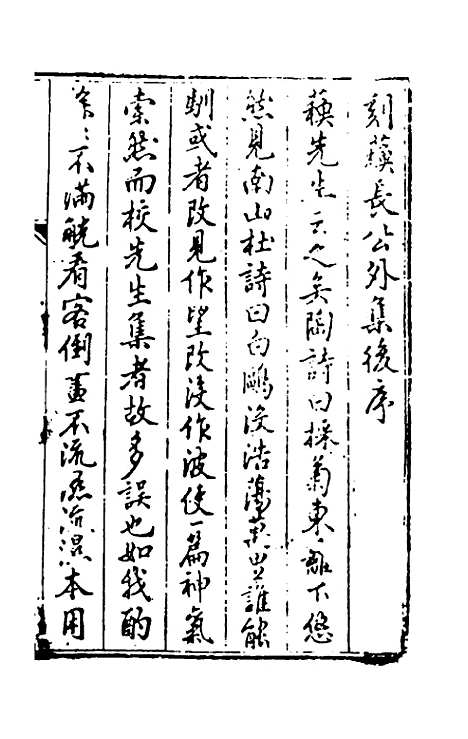 刻蘇長公外集後序
蘇先生言之矣陶詩曰採菊東籬下悠
然見南山杜詩曰白鷗沒浩蕩萬里誰能
馴或者改見作望改沒作波使一篇神氣
索然而校先生集者故多誤也如我酌
徐徐不滿觥看客倒盞不流涎流涎本用